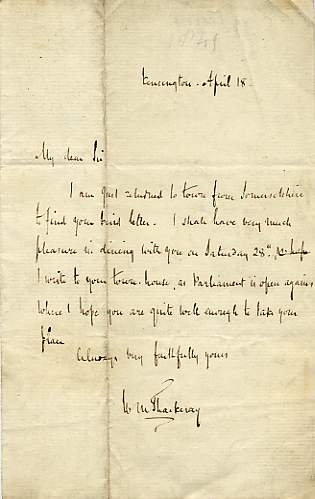 1849
Kensington. April 18.
My dear Sir
I am just returned to town from Somersetshire
to find your kind letter. I shall have very much
pleasure in dining with you on Saturday 28th.
I write to your town-house, as Parliament is open again
where I hope you are quite well enough to take your
place
Always very faithfully yours
W M Thackeray